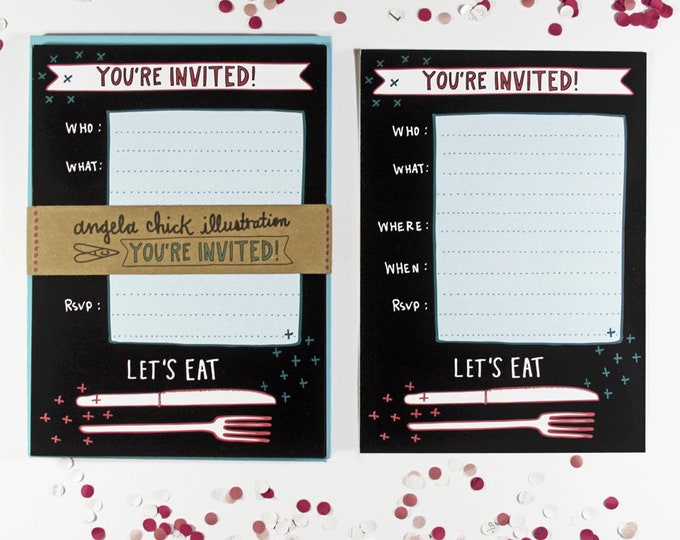 YOU'RE INVITED!
WHO:
WHAT:
angela chick illustration
YOU'RE INVITED!
RSVP:
LET'S EAT
YOU'RE INVITED!
WHO:
WHAT:
WHERE:
WHEN:
RSVP:
LET'S EAT